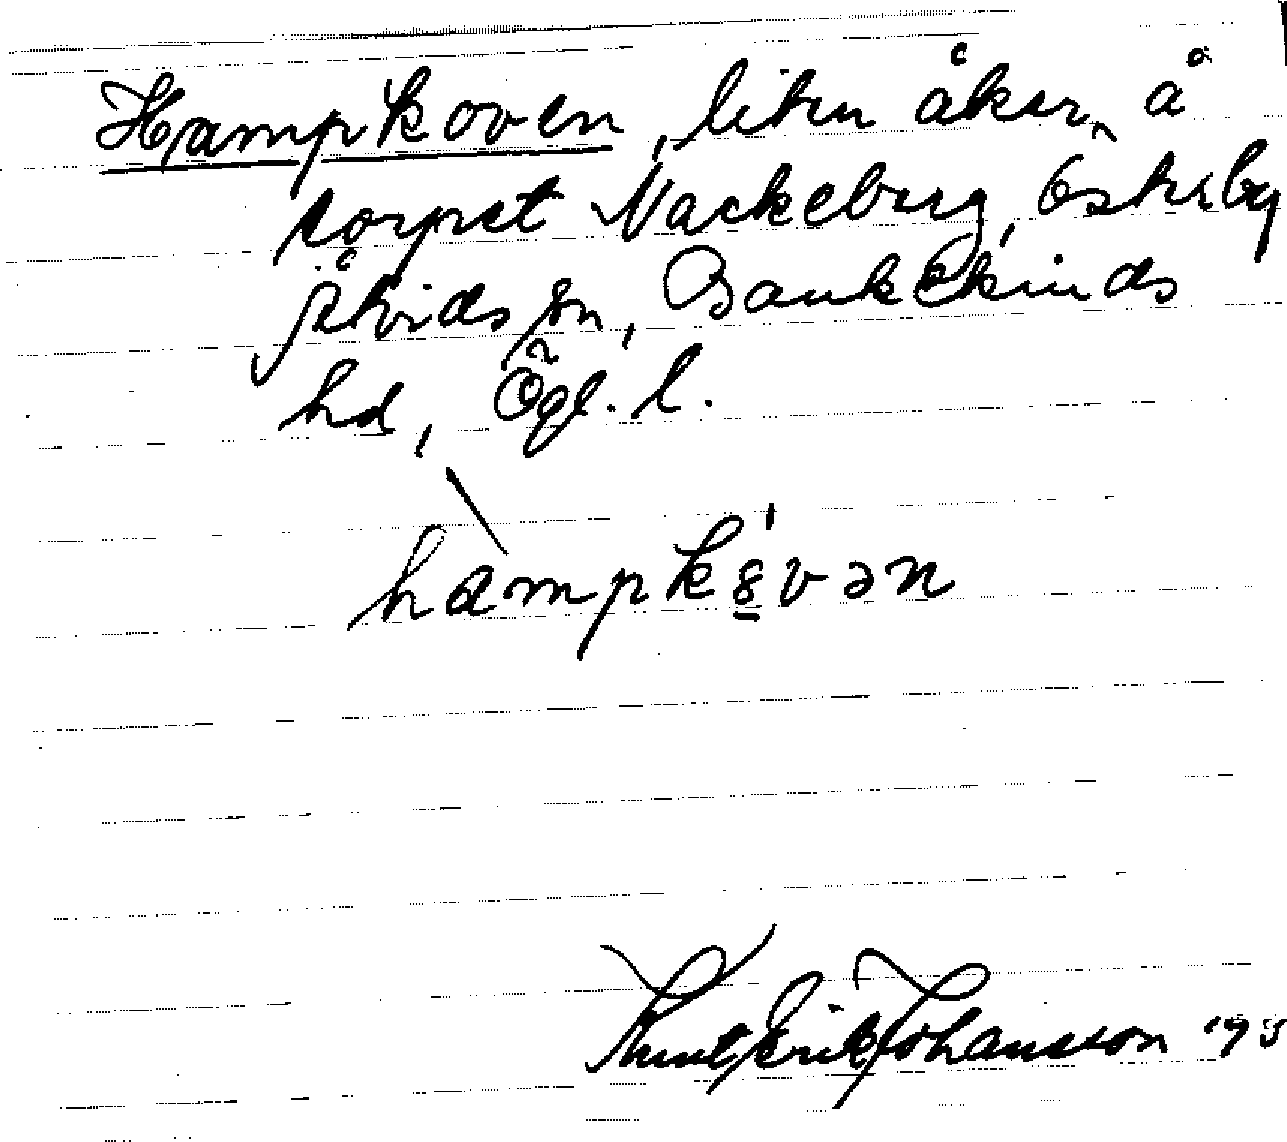 Hampkoven, liten åker å
torpet Nackeberg, Österby
Åtvids sn, Bankekinds
hd, Ögl. l.
hampkȣvən
Knut Erik Johansson